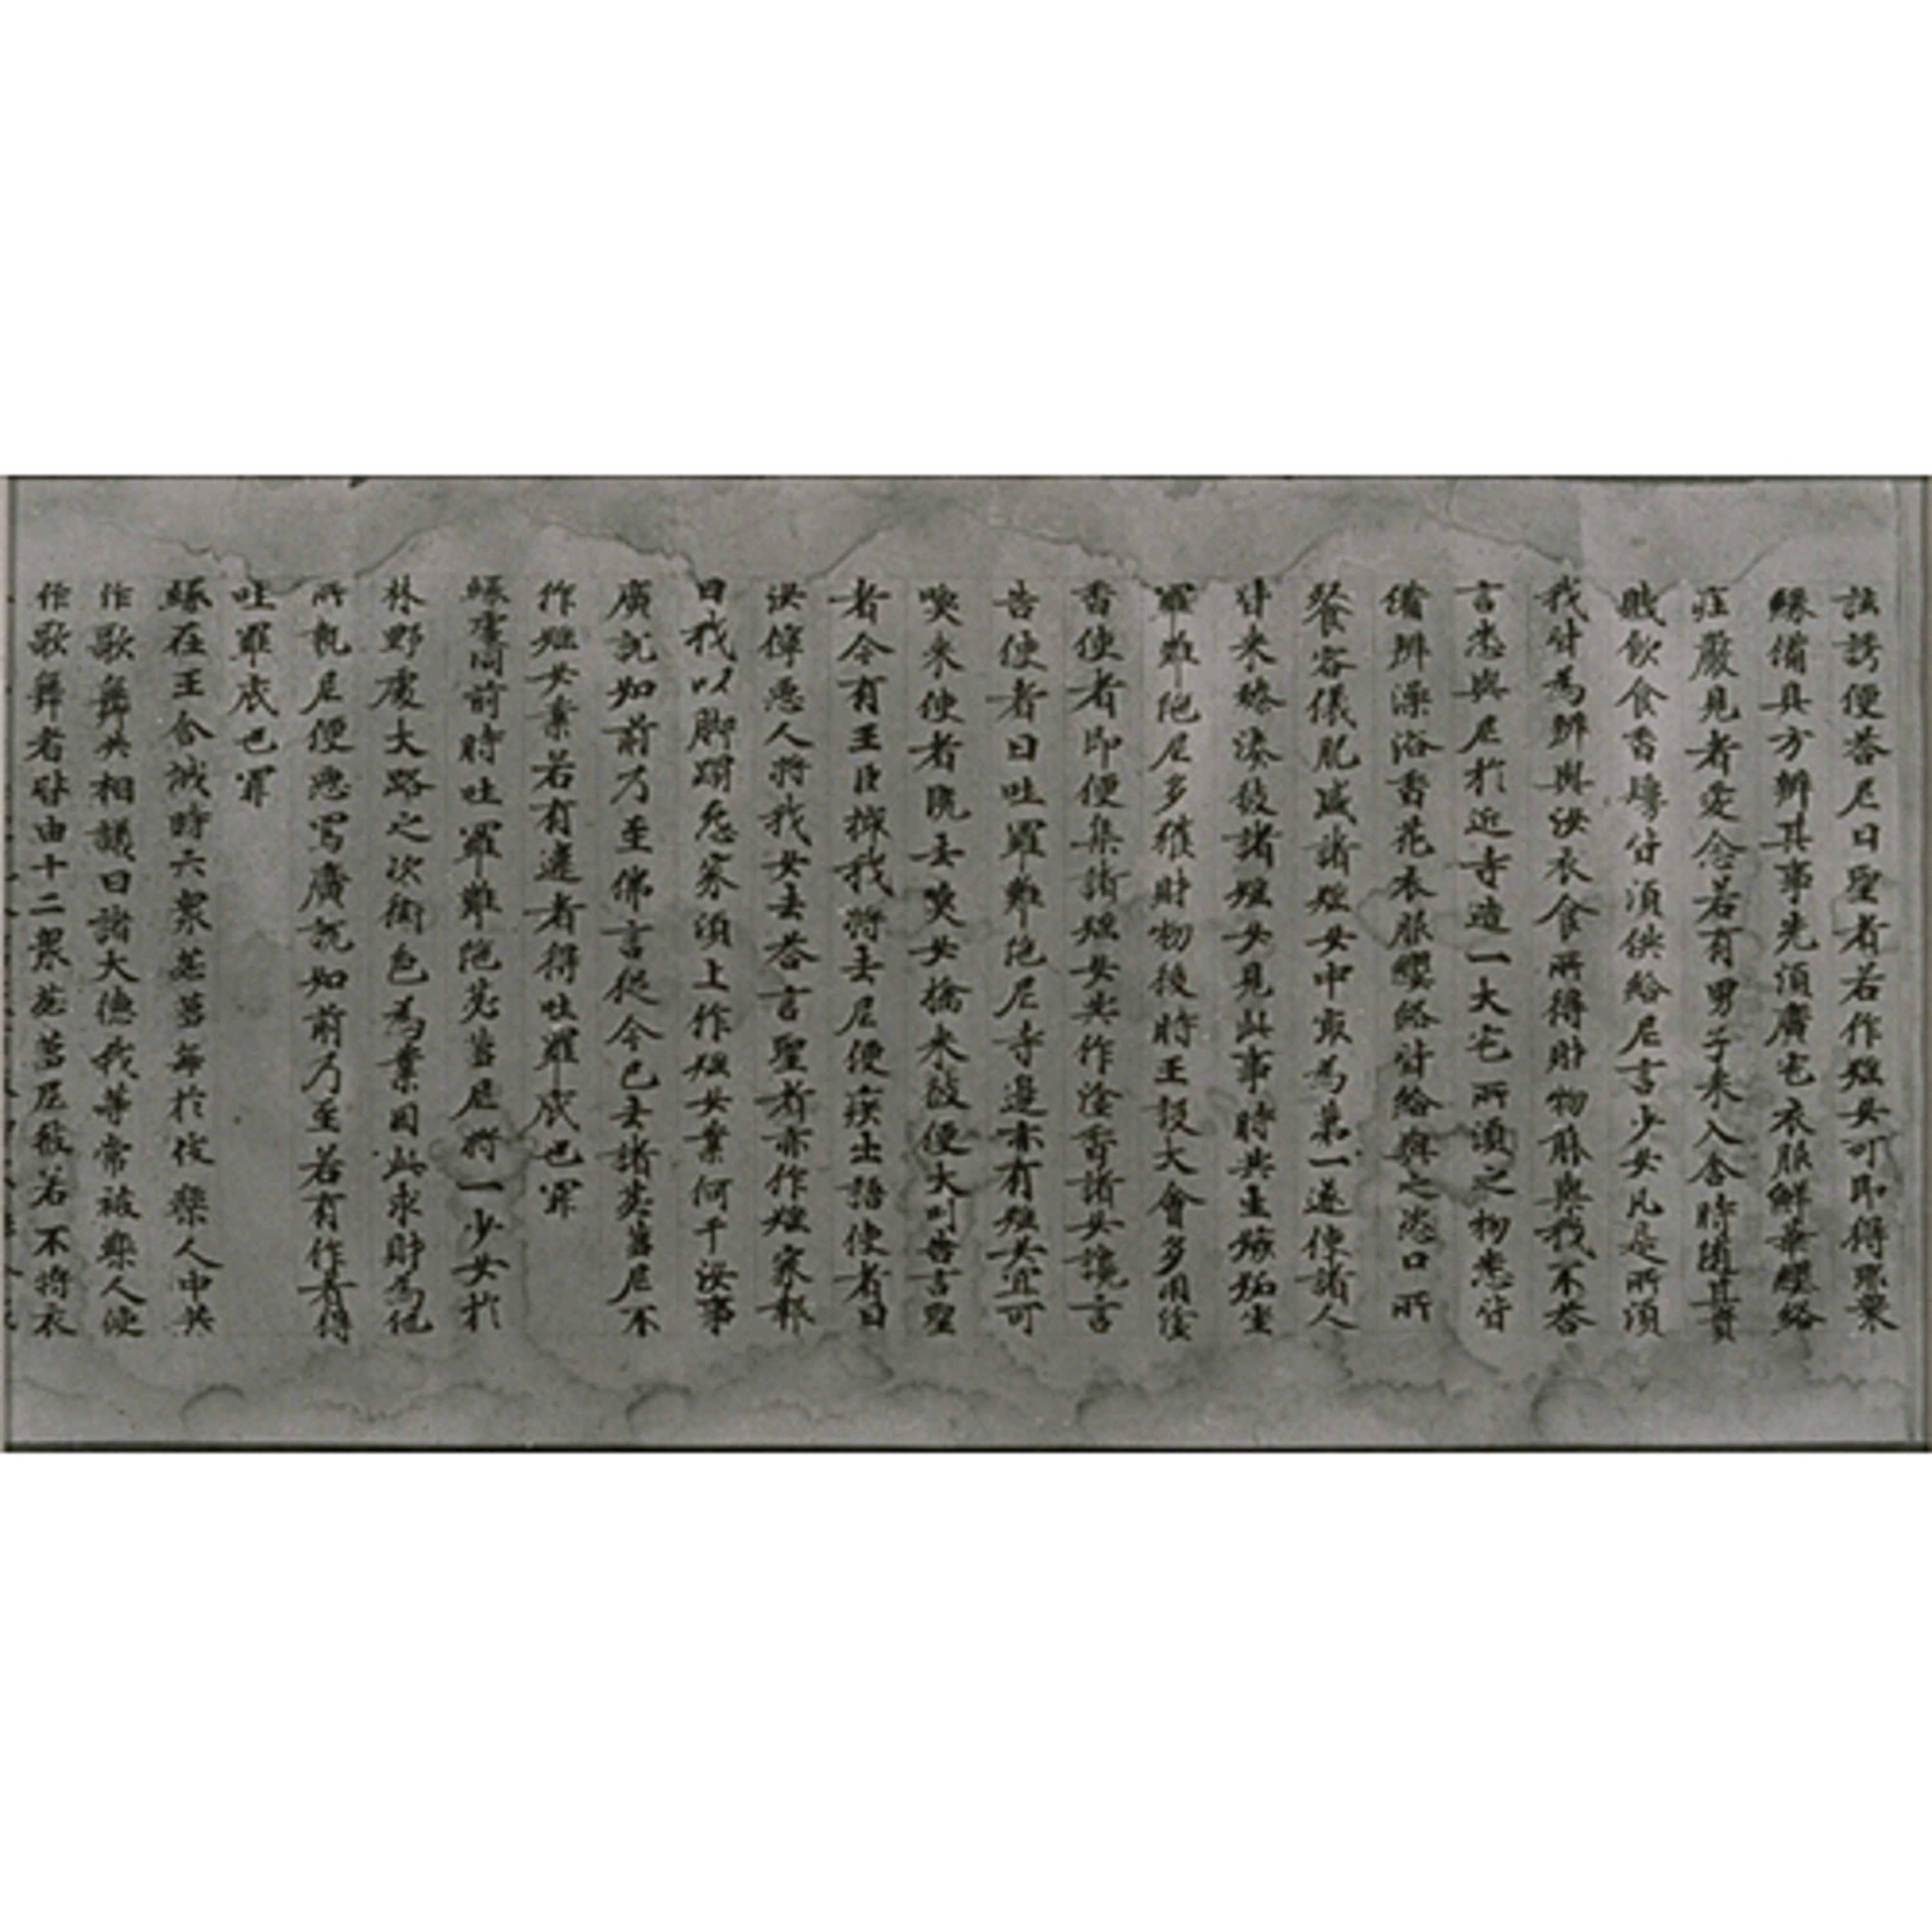 誑誘便荅尼曰聖者若作婬女可即得軄業
緣備具方辦其事先須廣宅衣服鮮華瓔珞
莊嚴見者愛念若有男子来入舍時隨其貴
賎飲食香鬘皆須供給尼言少女凡是所須
我皆為辦與汝衣食所得財物瓶與我不荅
言悉與尼於近寺造一大宅所須之物悉皆
備辦澡浴香花衣服瓔珞皆給與之恣口所
餐容儀肥盛諸婬女中寂為第一遂使諸人
皆来臻湊餘諸婬女見此事時共生嫉妬吐
羅難陁尼多獲財物後時王設大會多用塗
香使者即便集諸婬女共作塗香諸女譏言
告使者曰吐羅難陁尼寺邊亦有婬女宜可
喚来使者既去喚女擒来啟便大叫告言聖
者令有王臣撮我將去尼便疾出語使者曰
汝傳悉人將我女去荅言聖者亦作婬家報
曰我以脚蹋怨家項上作婬女業何干汝事
廣說如前乃至佛言從今已去諸苾蒭尼不
作婬女業若有違者得吐羅底也罪
緣處同前時吐羅難陁苾蒭尼將一少女於
林野處大路之次衒色為業因此求財為他
所執尼便惡罵廣說如前乃至若有作者得
吐羅底也罪
緣在王舍城時六衆苾蒭每於伎樂人中共
作歌舞共相議曰諸大德我等常被樂人使
作歌舞者皆由十二衆苾蒭尼啟若不將衣